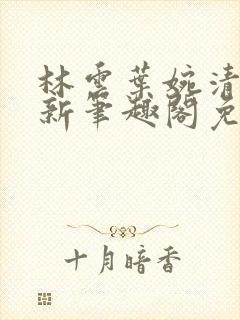 林雲葉婉清
新筆趣閣免
十月暗香